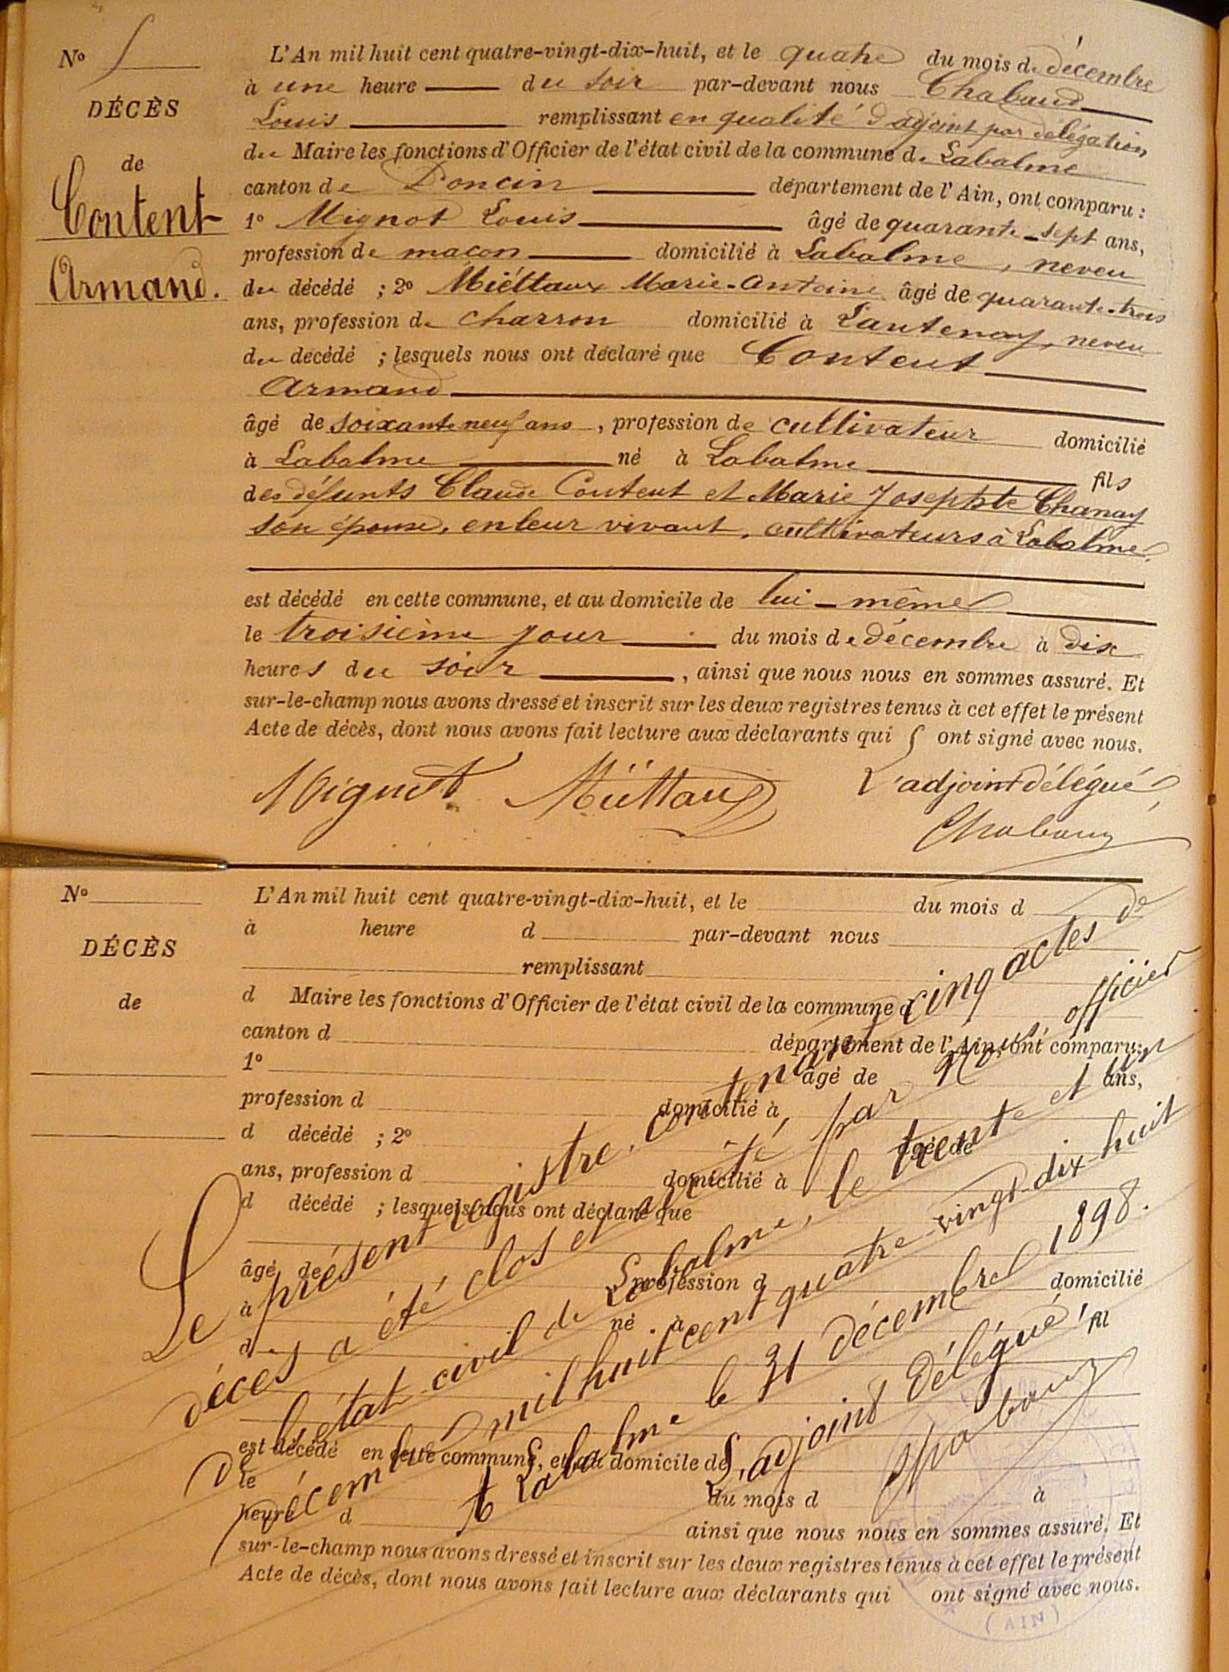 Nº 5
DÉCÈS
de
Content
Armand.
L'An mil huit cent quatre-vingt-dix-huit, et le quatre du mois de décembre
à une heure du soir par-devant nous Chabaud
Louis remplissant en qualité d'adjoint par délégation
du Maire les fonctions d'Officier de l'état civil de la commune de Labalme
canton de Poncin département de l'Ain, ont comparu :
1º Mignot Louis âgé de quarante-sept ans,
profession de maçon domicilié à Labalme, neveu
du décédé ; 2º Miéttaux Marie-Antoine âgé de quarante-trois
ans, profession de charron domicilié à Lantenay, neveu
du décédé ; lesquels nous ont déclaré que Content
Armand
âgé de soixante neuf ans, profession de cultivateur domicilié
à Labalme né à Labalme fils
des défunts Claude Content et Marie Josephte Chanay
son épouse, en leur vivant, cultivateurs à Labalme,
est décédé en cette commune, et au domicile de lui-même
le troisième jour du mois de décembre à dix
heures du soir, ainsi que nous nous en sommes assuré. Et
sur-le-champ nous avons dressé et inscrit sur les deux registres tenus à cet effet le présent
Acte de décès, dont nous avons fait lecture aux déclarants qui ont signé avec nous.
Mignot Miéttaux L'adjoint délégué
Chabaud
Nº
DÉCÈS
de
L'An mil huit cent quatre-vingt-dix-huit, et le du mois d
à heure d par-devant nous
remplissant
d Maire les fonctions d'Officier de l'état civil de la commune d
canton d département de l'Ain, ont comparu :
1º âgé de ans,
profession d domicilié à
d décédé ; 2º âgé de
ans, profession d domicilié à
d décédé ; lesquels nous ont déclaré que
âgé de profession d domicilié
à né à
d fil
est décédé en cette commune, et au domicile de
le du mois d à
heure d ainsi que nous nous en sommes assuré. Et
sur-le-champ nous avons dressé et inscrit sur les deux registres tenus à cet effet le présent
Acte de décès, dont nous avons fait lecture aux déclarants qui ont signé avec nous.
Le présent registre, contenant cinq actes de
décès a été clos et arrêté, par nous officier
de l'état civil de Labalme, le trente et un
Décembre mil huit cent quatre-vingt-dix-huit
à Labalme le 31 décembre 1898.
L'adjoint délégué
Chabaud
(AIN)